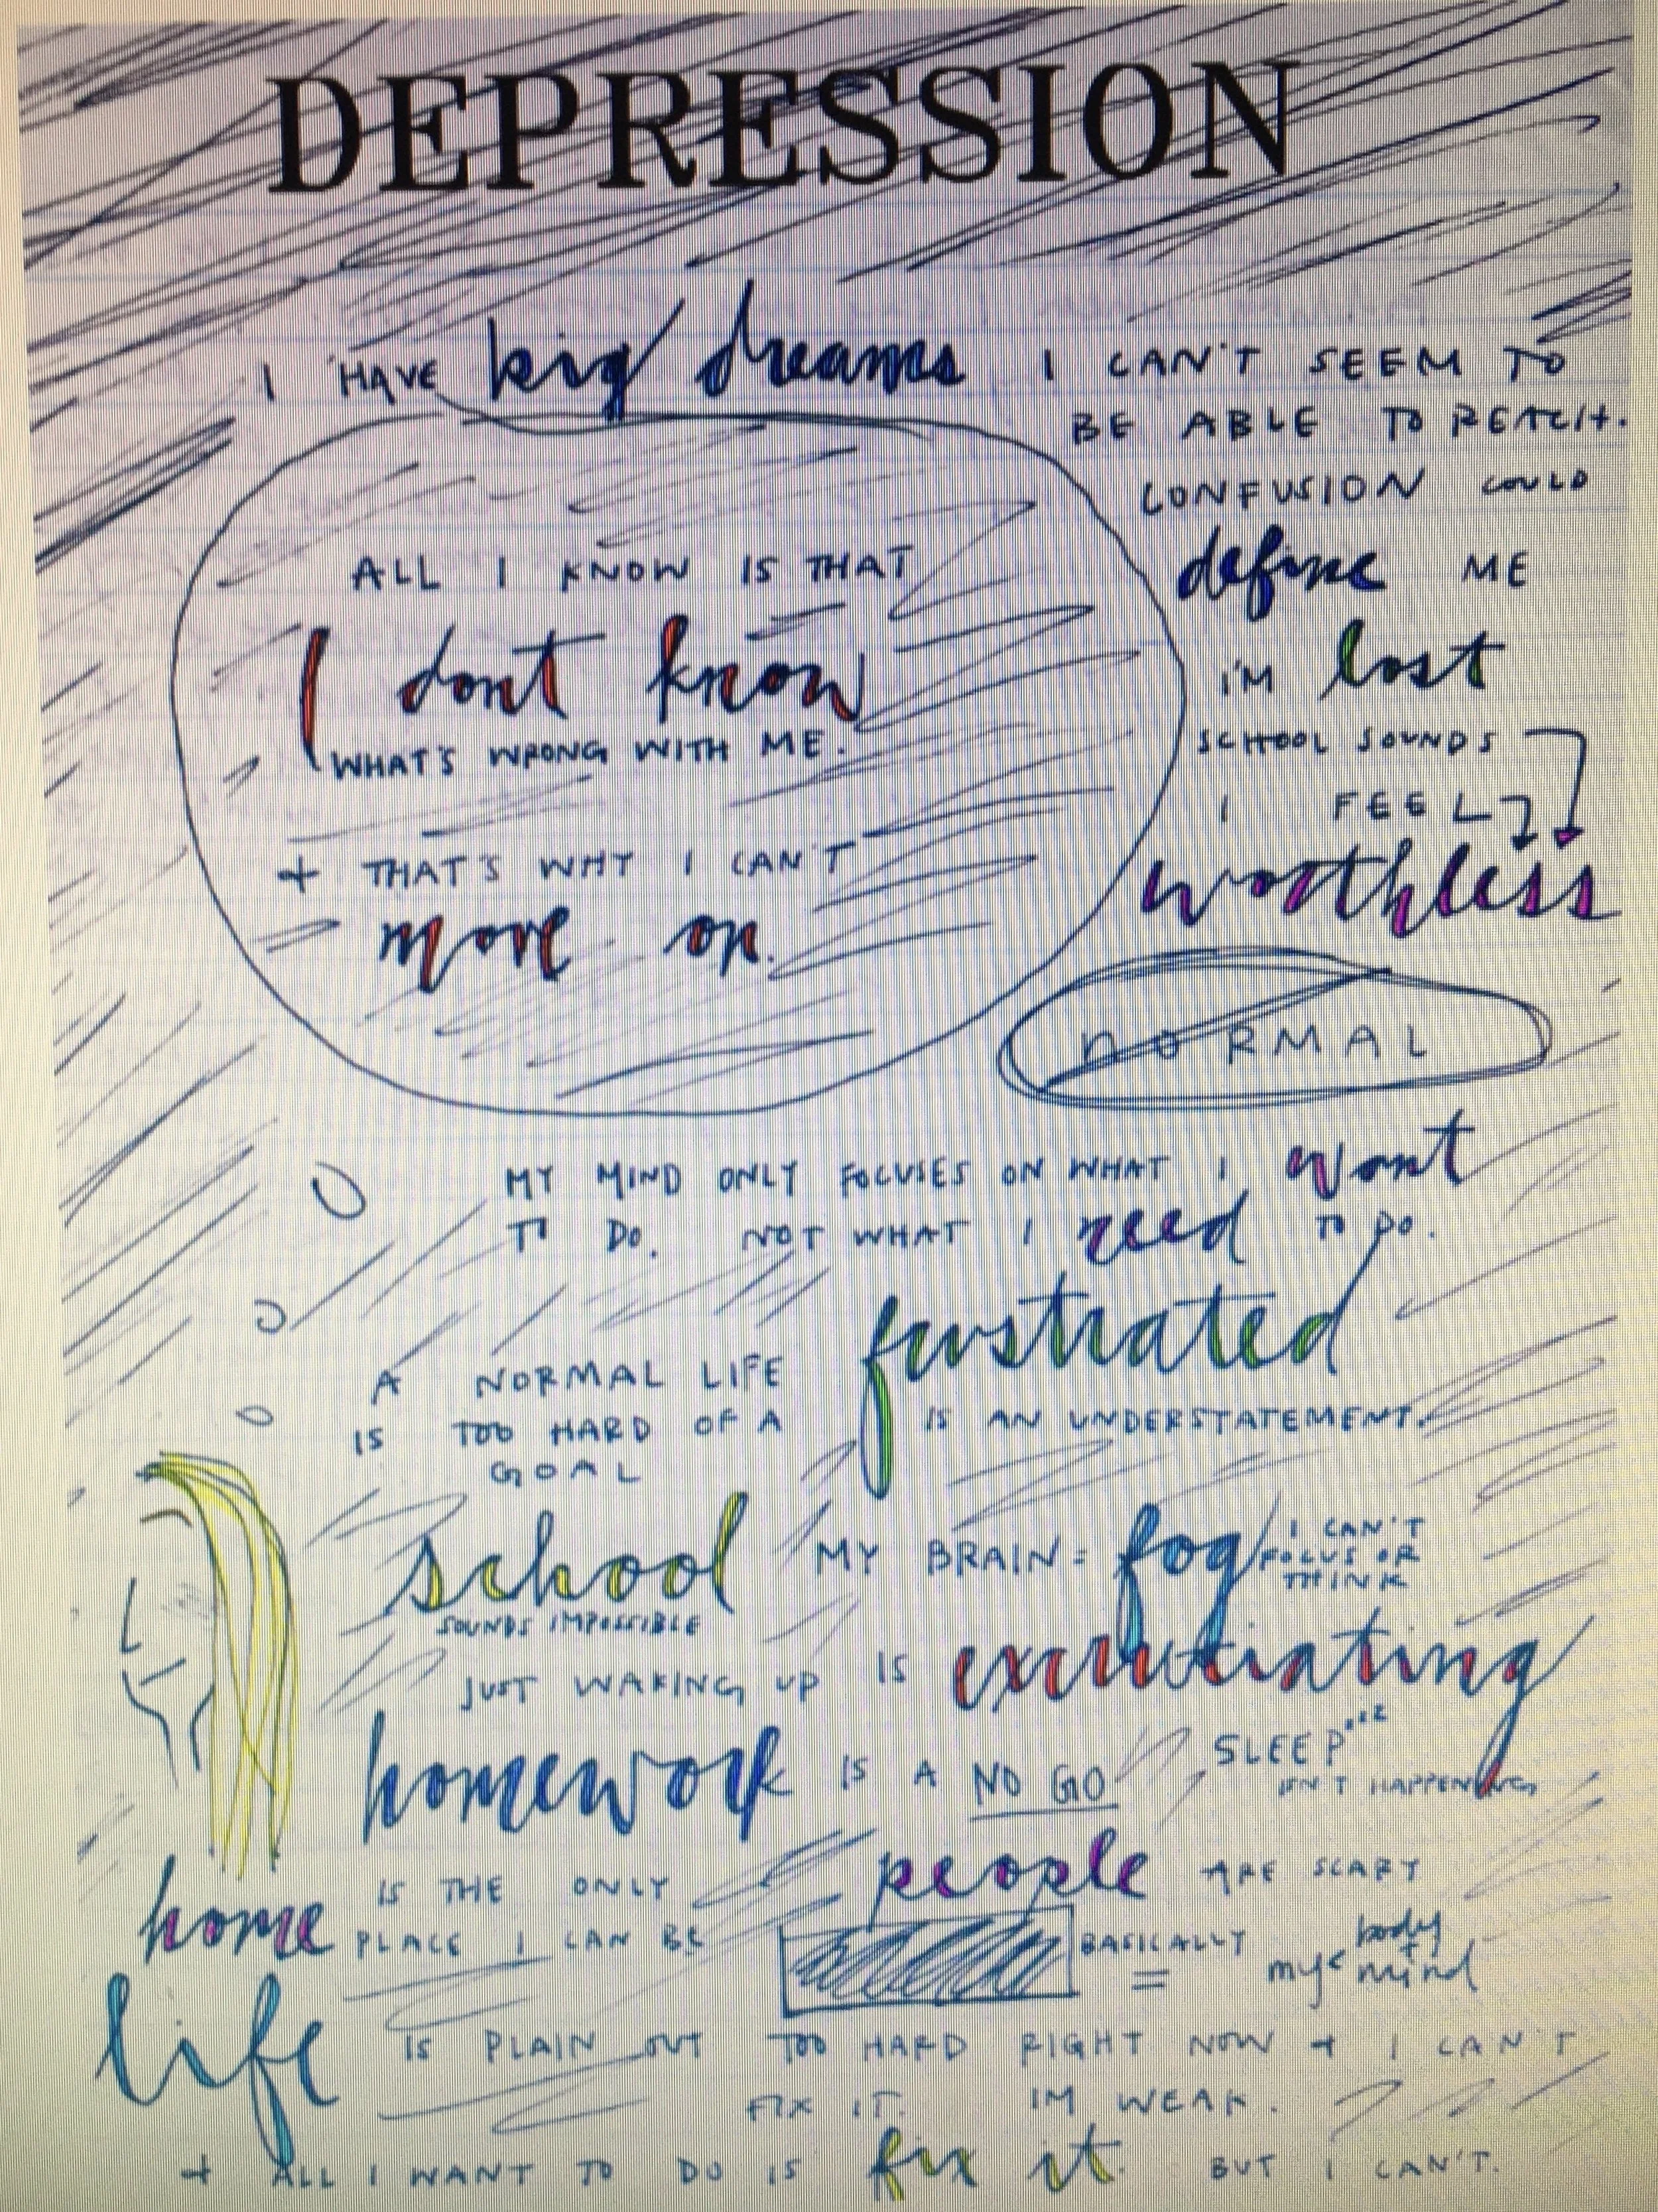 DEPRESSION
I HAVE big dreams I CAN'T SEEM TO
BE ABLE TO REACH.
CONFUSION COULD
define ME
I'M lost
SCHOOL SOUNDS
I FEEL
worthless
ALL I KNOW IS THAT
I dont know
WHAT'S WRONG WITH ME.
+ THAT'S WHY I CAN'T
move on.
NORMAL
MY MIND ONLY FOCUSES ON WHAT I want
TO DO. NOT WHAT I need TO DO.
A NORMAL LIFE
IS TOO HARD OF A
GOAL
furstrated
IS AN UNDERSTATEMENT.
school
SOUNDS IMPOSSIBLE
MY BRAIN = fog
I CAN'T
FOCUS OR
THINK
JUST WAKING UP IS excrutiating
homework IS A NO GO
SLEEP zzz
ISN'T HAPPENING
home IS THE ONLY
PLACE I CAN BE
people ARE SCARY
BASICALLY
=
my body
+
mind
life IS PLAIN OUT TOO HARD RIGHT NOW + I CAN'T
FIX IT. IM WEAK.
+ ALL I WANT TO DO IS fix it. BUT I CAN'T.